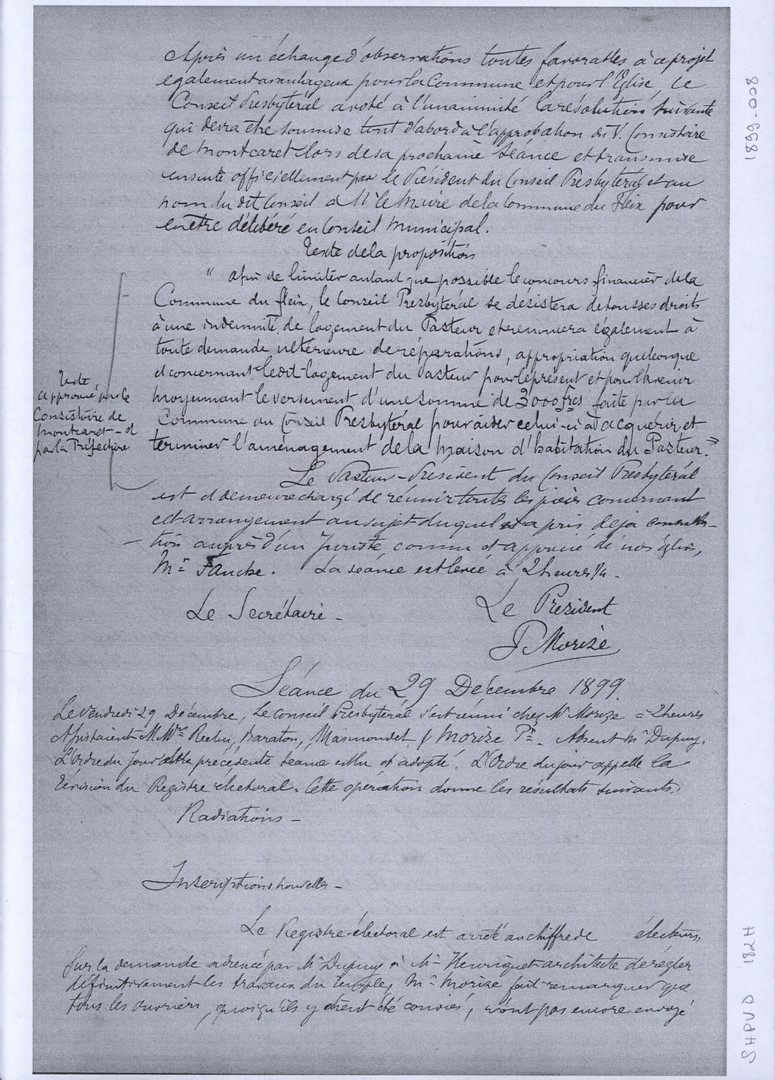 Après un échange d'observations toutes favorables à ce projet
également avantageux pour la Commune et pour l'Eglise le
Conseil Presbytéral a voté à l'unanimité la résolution suivante
qui devra être soumise tout d'abord à l'approbation du V. Consistoire
de Montcaret lors de sa prochaine séance et transmise
ensuite officiellement par le Président du Conseil Presbytéral et au
nom du dit Conseil à Mr le Maire de la Commune du Fleix pour
en être délibéré en Conseil Municipal.
Texte de la proposition
" Afin de limiter autant que possible le concours financier de la
Commune du fleix, le Conseil Presbytéral se désistera de tous ses droits
à une indemnité de logement du Pasteur et renoncera également à
toute demande ultérieure de réparations, appropriation quelconque
et concernant le dit logement du Pasteur pour le présent et pour l'avenir
moyennant le versement d'une somme de 2000 frs faite par la
Commune au Conseil Presbytéral pour aider celui-ci à acquérir et
terminer l'aménagement de la maison d'habitation du Pasteur."
Texte
approuvé par le
Consistoire de
Montcaret - et
par la Préfecture
Le Pasteur-Président du Conseil Presbytéral
est et demeure chargé de réunir toutes les pièces concernant
cet arrangement au sujet duquel il a pris déjà consulta-
tion auprès d'un Juriste connu et apprécié de nos églises,
Mr Fauche. La séance est levée à 2 heures 1/4.
Le Secrétaire - Le Président
P Morize
Séance du 29 Décembre 1899.
Le Vendredi 29 Décembre, Le conseil Presbytéral s'est réuni chez Mr Morize à 2 heures
Assistaient M.Mrs Baraton, Masmondet & Morize Pt. Absent Mr Dupuy.
L'Ordre du Jour de la précédente séance est lu et adopté. L'Ordre du jour appelle la
Révision du Registre électoral. Cette opération donne les résultats suivants.
Radiations -
Inscriptions nouvelles -
Le Registre électoral est arrêté au chiffre de électeurs
Sur la demande adressée par Mr Dupuy à Mr Henriquet architecte de régler
définitivement les travaux du Temple, Mr Morize fait remarquer que
tous les ouvriers, quoiqu'ils y aient été conviés, n'ont pas encore envoyé
1899-008
SHPVD 182H